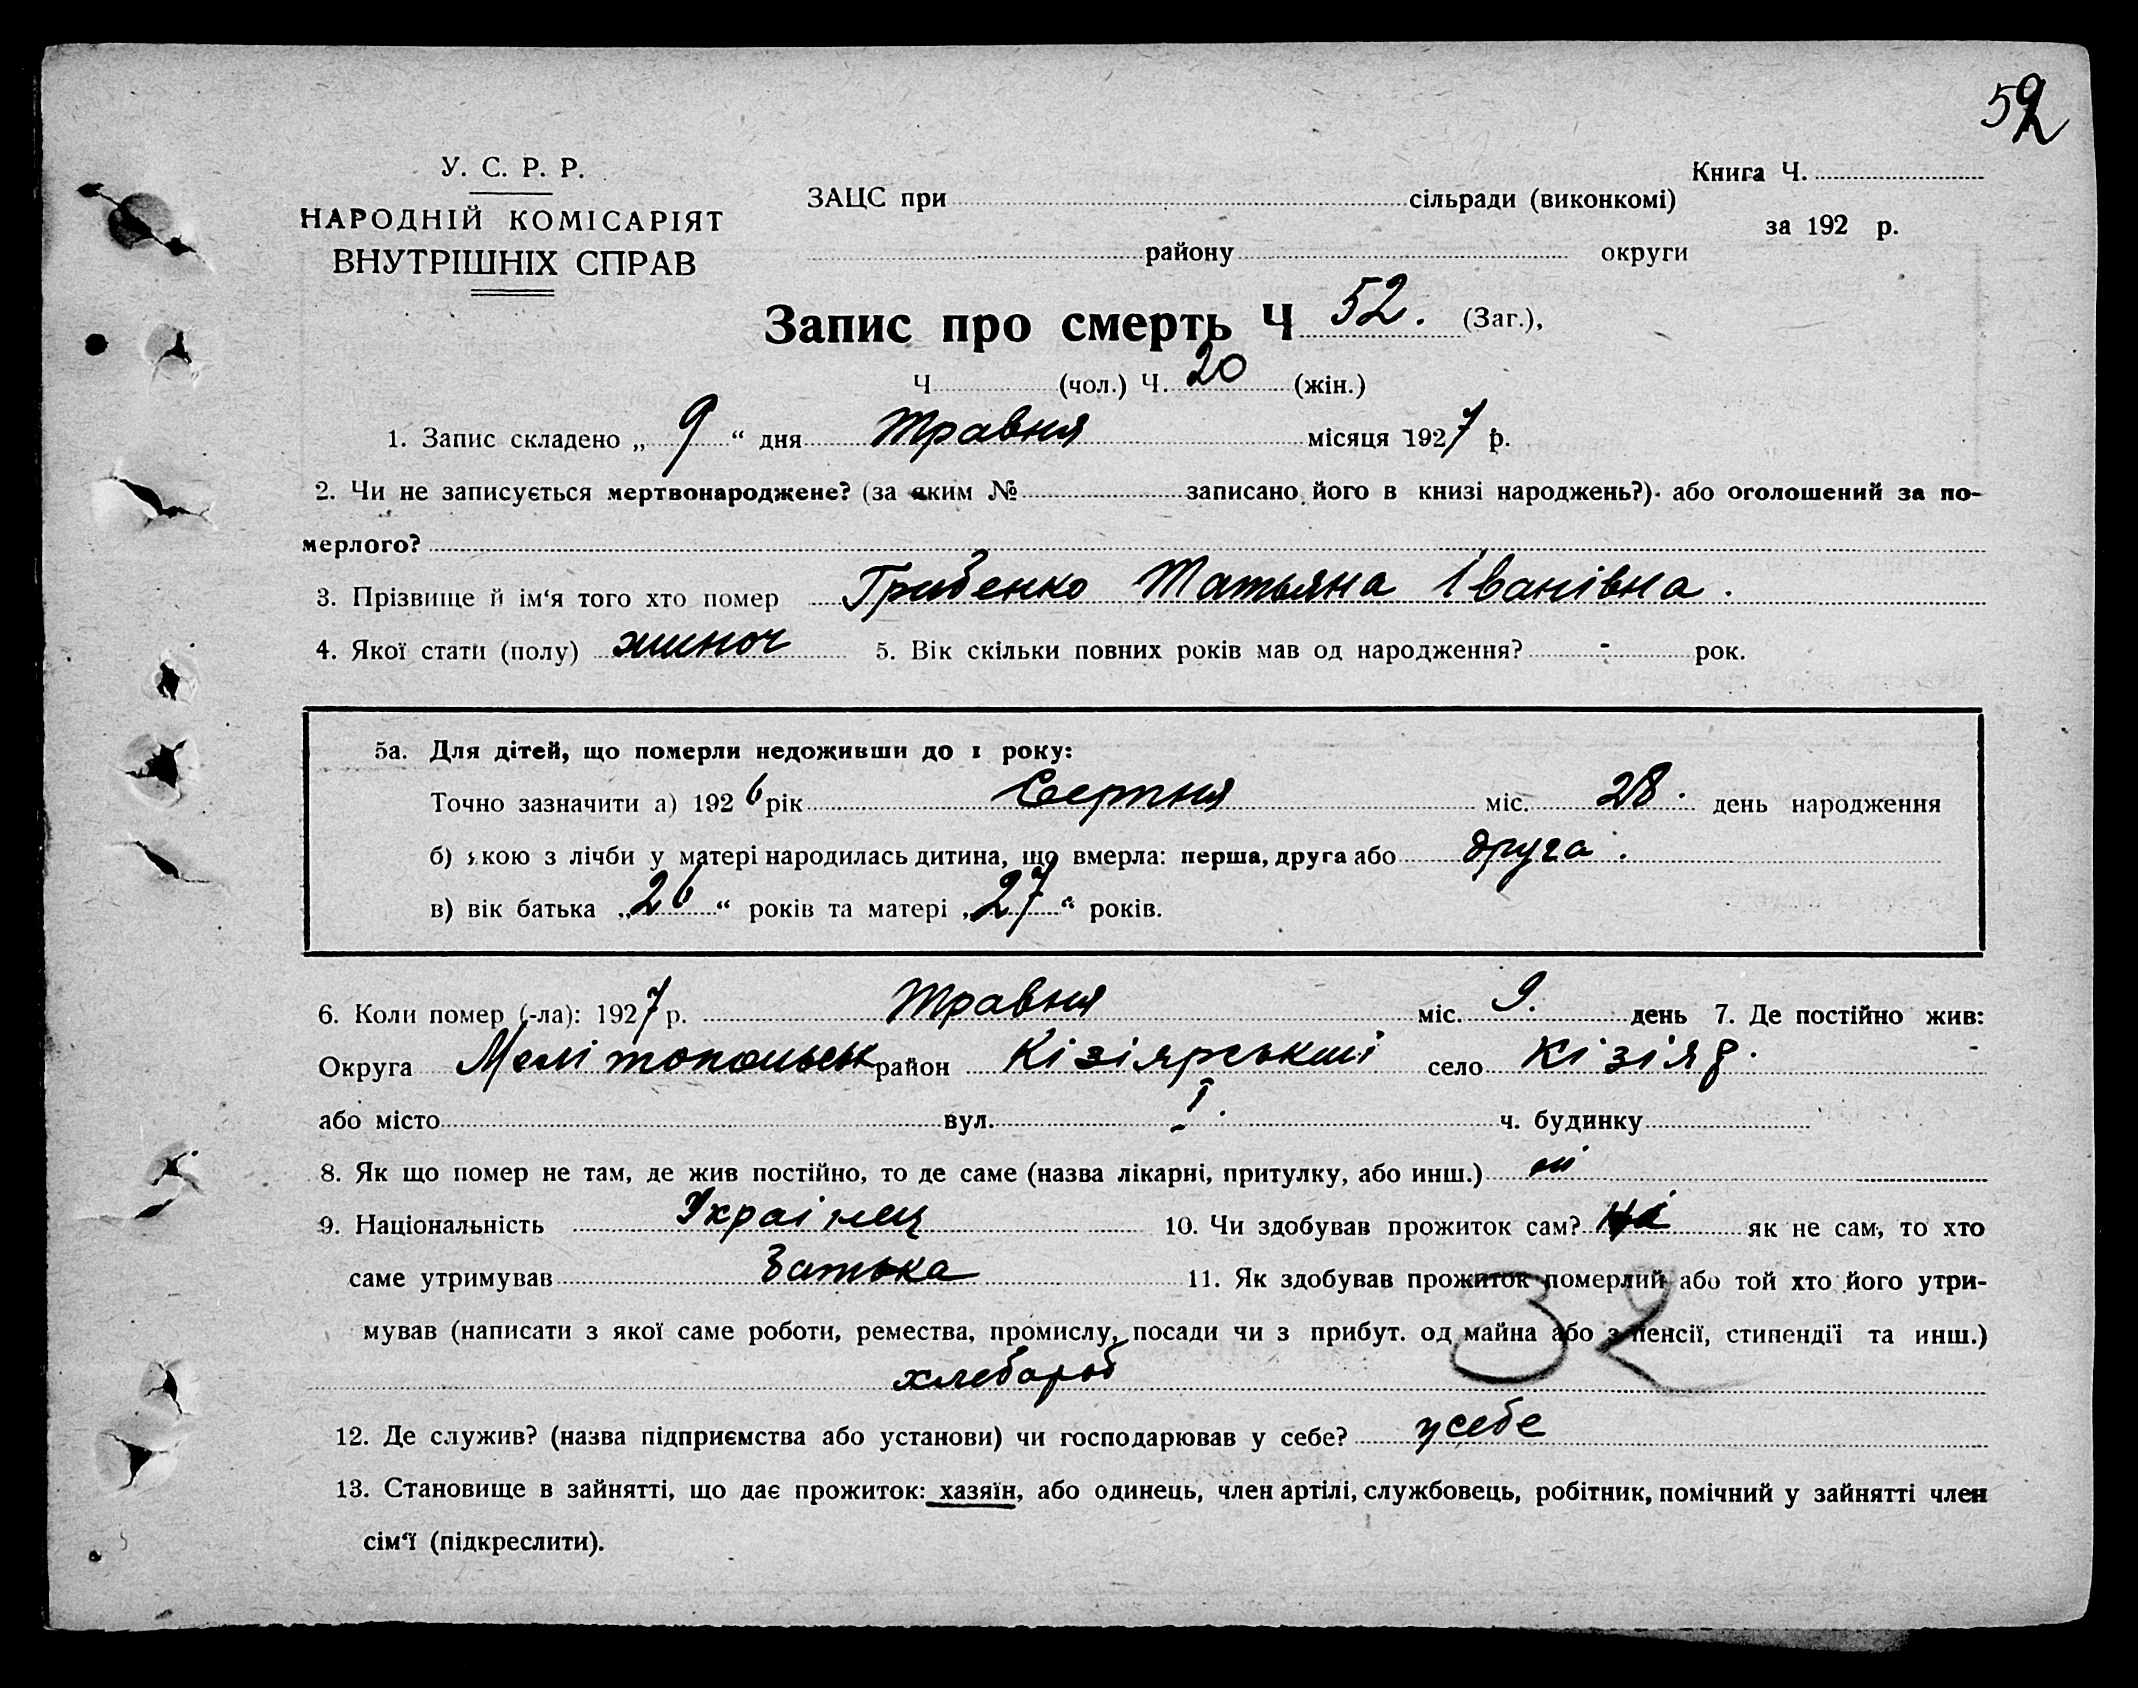 52
У. С. Р. Р.
НАРОДНІЙ КОМІСАРІЯТ
ВНУТРІШНІХ СПРАВ
Книга Ч.
ЗАЦС при сільради (виконкомі)
за 192 р.
району округи
Запис про смерть Ч 52. (Заг.),
Ч (чол.) Ч. 20 (жін.)
1. Запис складено „ 9 “ дня Травня місяця 1927 р.
2. Чи не записується мертвонароджене? (за яким № записано його в книзі народжень?) або оголошений за по-
мерлого?
3. Прізвище й ім‘я того хто помер Грибенко Татьяна Іванівна.
4. Якої стати (полу) жиноч 5. Вік скільки повних років мав од народження? - рок.
5а. Для дітей, що померли недоживши до 1 року:
Точно зазначити а) 1926 рік Серпня міс. 28. день народження
б) якою з лічби у матері народилась дитина, що вмерла: перша, друга або друга.
в) вік батька „26“ років та матері „27“ років.
6. Коли помер (-ла): 1927 р. Травня міс. 9. день 7. Де постійно жив:
Округа Мелітопольськ район Кізіярський село Кізіяр.
або місто вул. ч. будинку
8. Як що помер не там, де жив постійно, то де саме (назва лікарні, притулку, або инш.)
9. Національність Украінец 10. Чи здобував прожиток сам? ні як не сам, то хто
саме утримував Батька 11. Як здобував прожиток померлий або той хто його утри-
мував (написати з якої саме роботи, ремества, промислу, посади чи з прибут. од майна або з пенсії, стипендії та инш.)
32
хлебороб
12. Де служив? (назва підприємства або установи) чи господарював у себе? усебе
13. Становище в зайнятті, що дає прожиток: хазяїн, або одинець, член артілі, службовець, робітник, помічний у зайнятті член
сім‘ї (підкреслити).